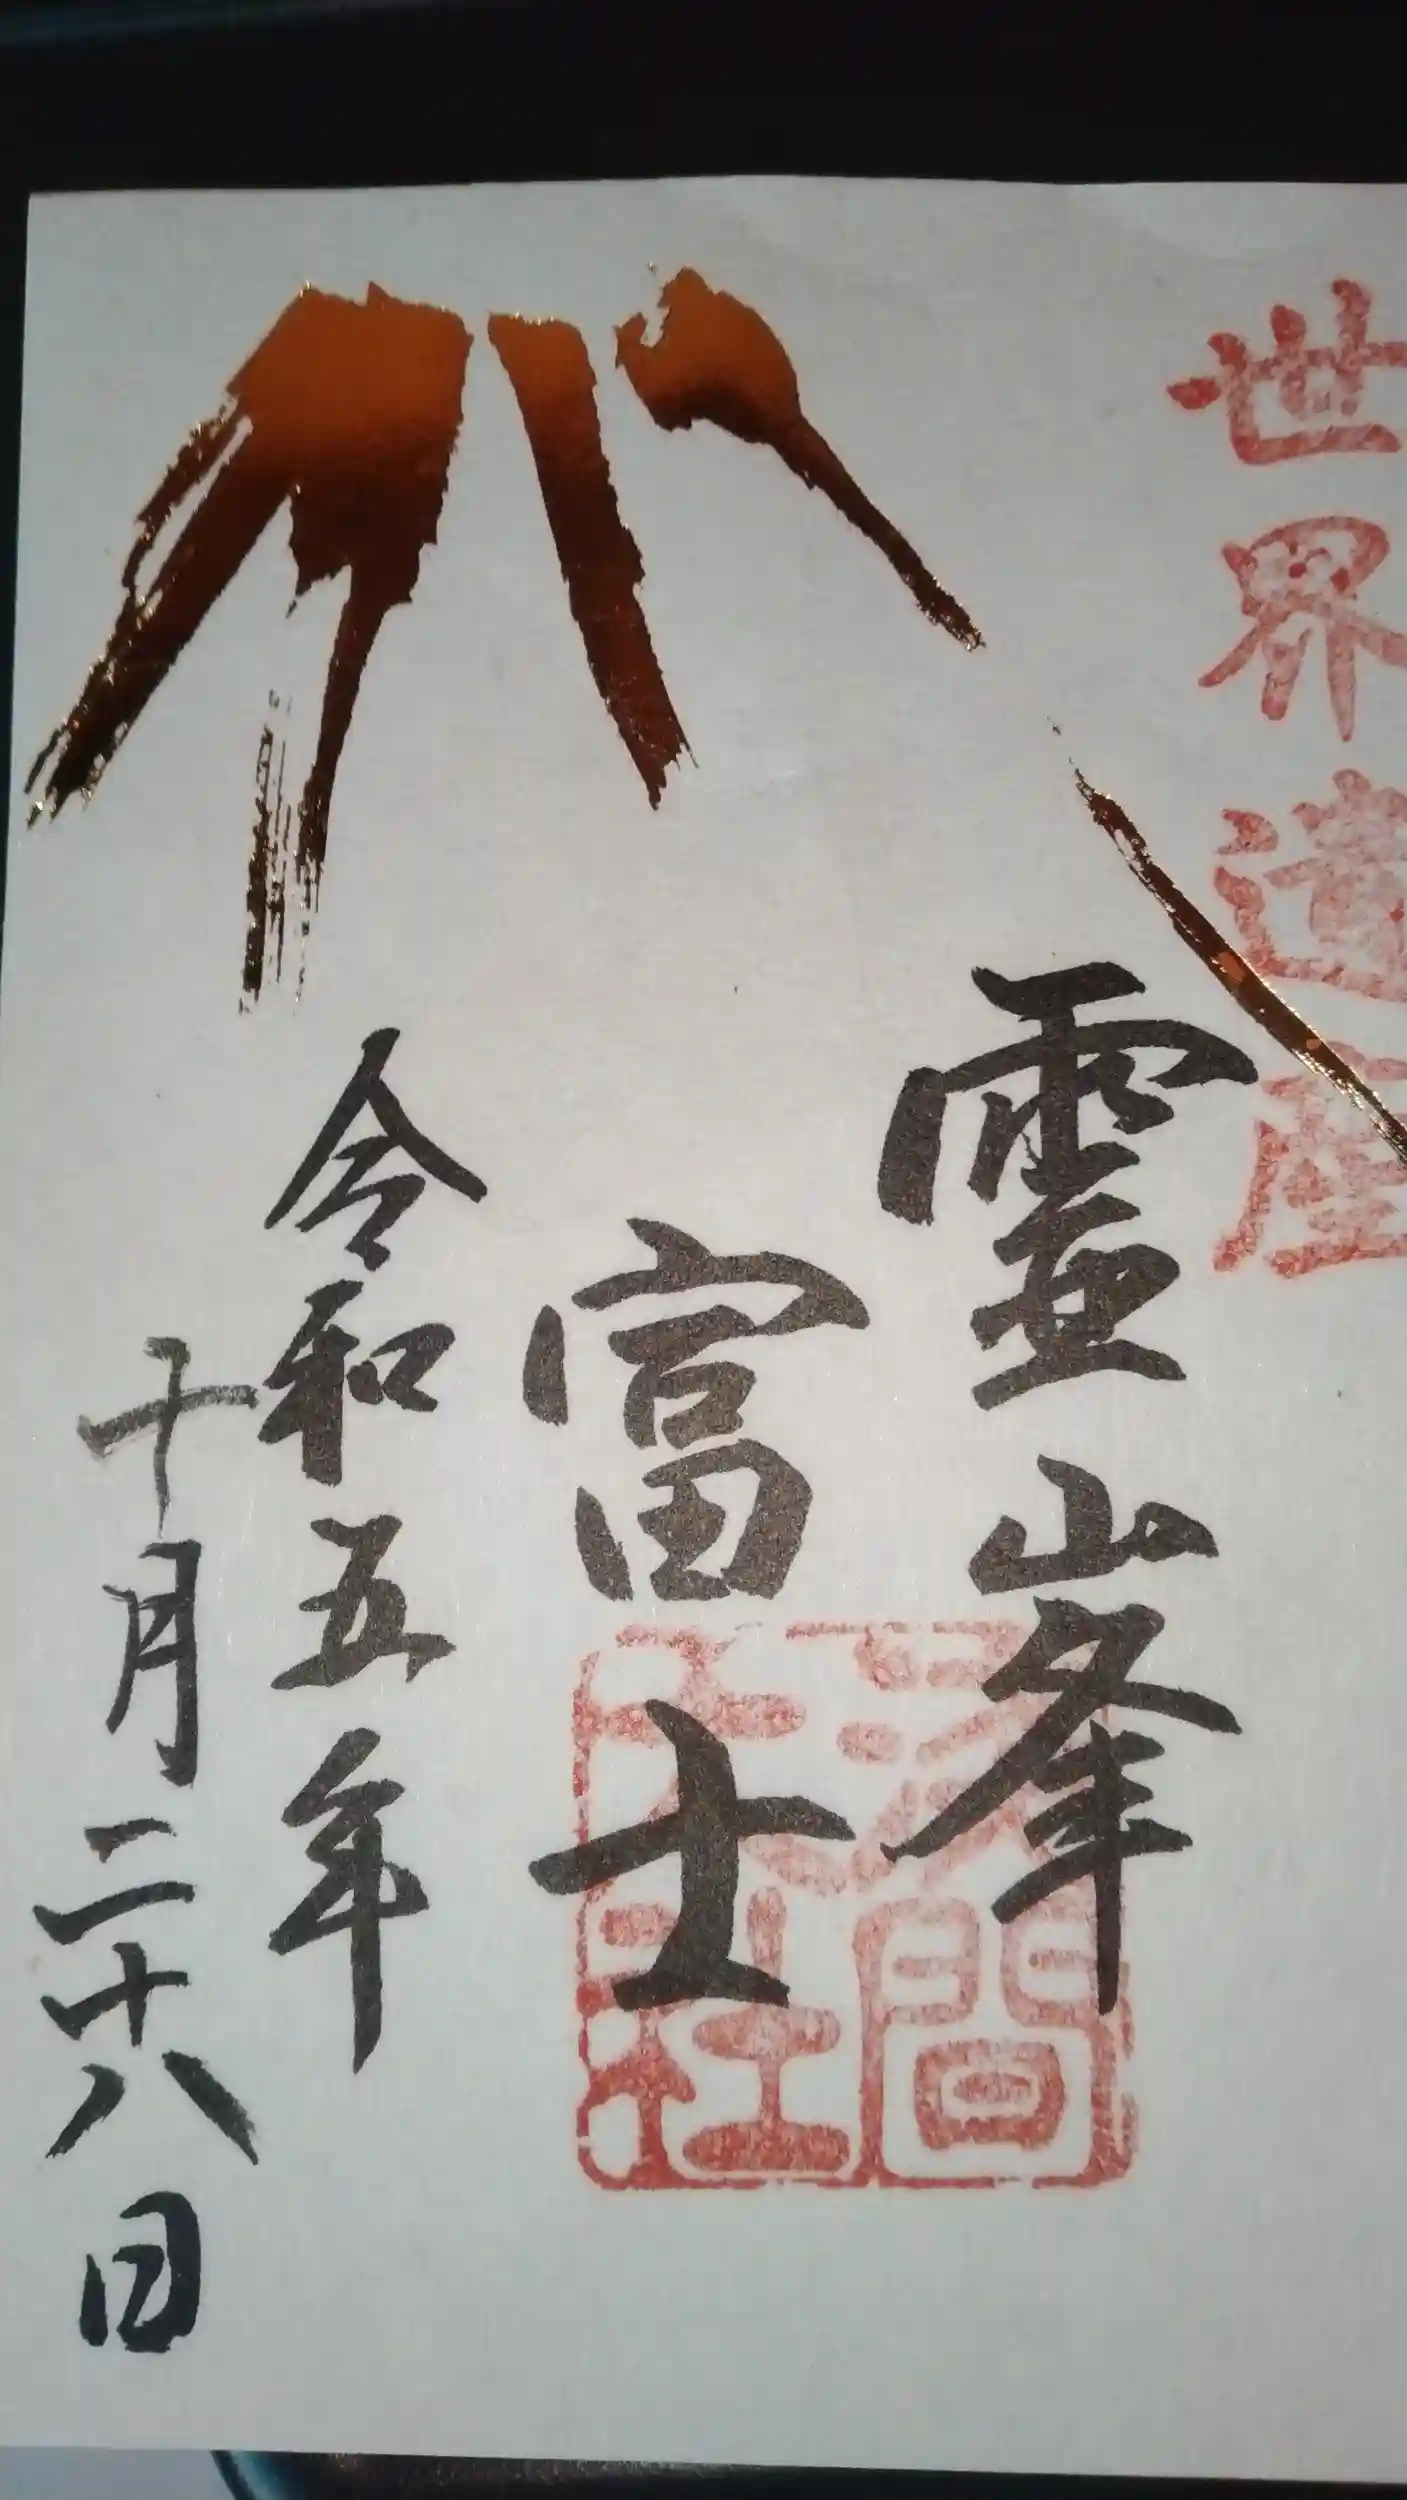 世界遺産
霊峯
富士
淺間
大社
令和五年
十月二十八日